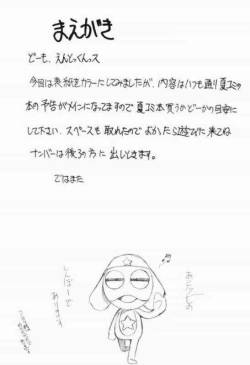 まえがき
どーも、えんどっくんっス
今回は表紙をカラーにしてみましたが、内容はいつも通り夏コミの
本の予告がメインになってますので夏コミ本買うかどーかの目安に
して下さい、スペースも取れたのでよかったら遊びに来てね
ナンバーは後ろの方に出しときます。
ではまた
しんぼーで
あります